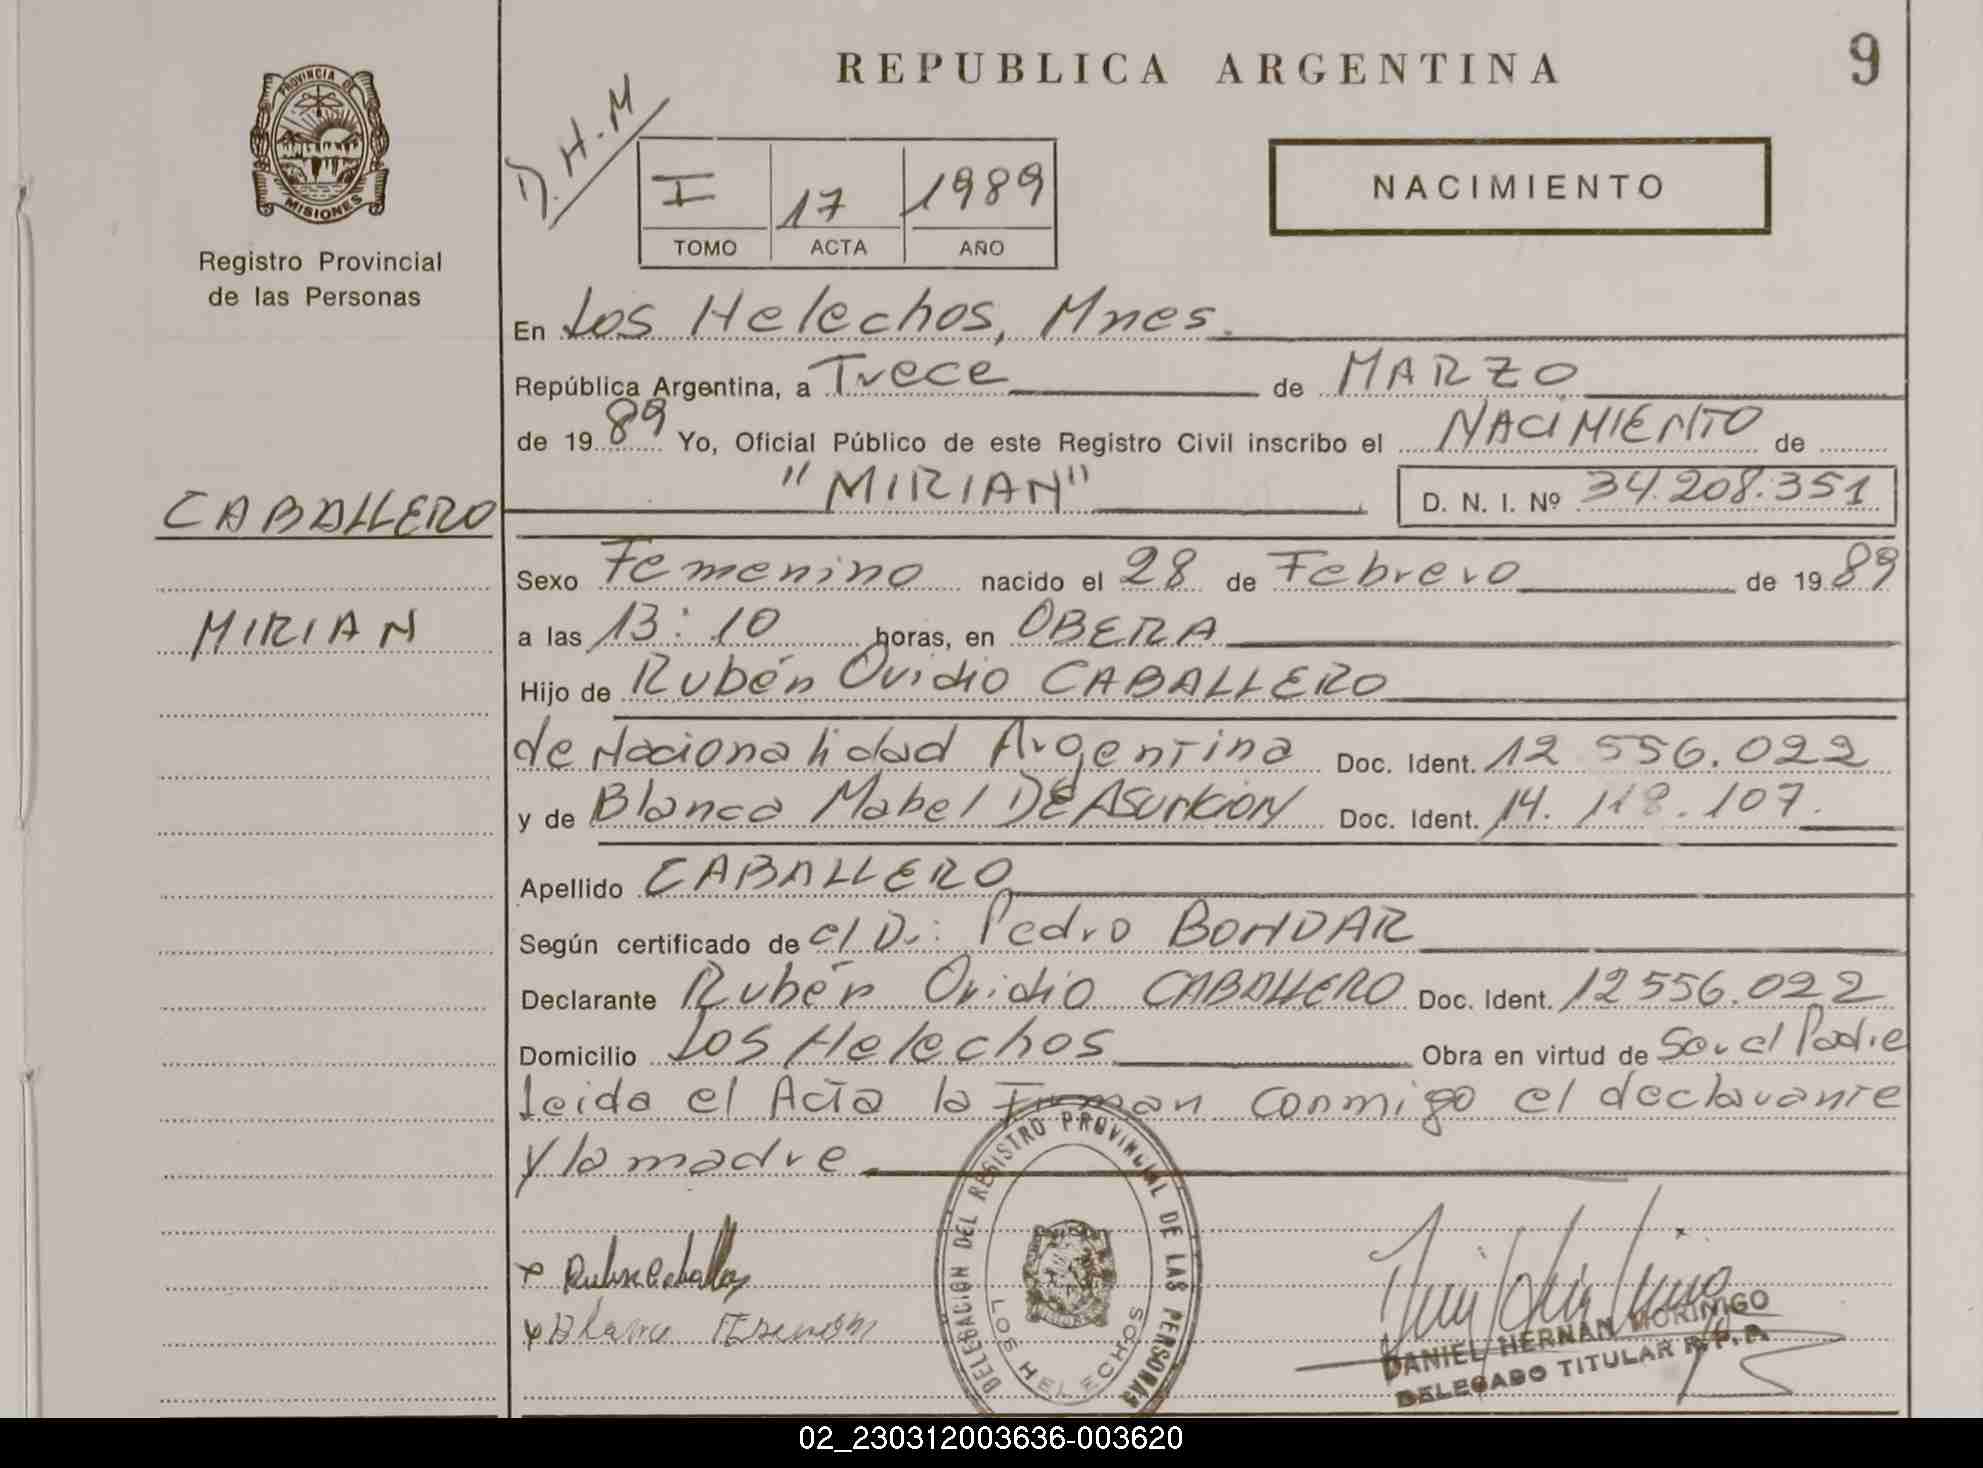 REPUBLICA ARGENTINA
9
PROVINCIA DE
MISIONES
Registro Provincial
de las Personas
D.H.M
I 17 1989
TOMO ACTA AÑO
NACIMIENTO
En Los Helechos, Mnes.
República Argentina, a Trece de MARZO
de 1989 Yo, Oficial Público de este Registro Civil inscribo el NACIMIENTO de
"MIRIAN" D. N. I. Nº 34.208.351
CABALLERO
MIRIAN
Sexo Femenino nacido el 28 de Febrero de 1989
a las 13:10 horas, en OBERA
Hijo de Rubén Ovidio CABALLERO
de Nacionalidad Argentina Doc. Ident. 12 556.022
y de Blanca Mabel DE ASUNCION Doc. Ident. 14. 118.107.
Apellido CABALLERO
Según certificado de el Dr: Pedro BONDAR
Declarante Rubén Ovidio CABALLERO Doc. Ident. 12556.022
Domicilio Los Helechos Obra en virtud de Ser el Padre
Leida el Acta la Firman conmigo el declarante
y la madre
DELEGACIÓN DEL REGISTRO PROVINCIAL DE LAS PERSONAS
LOS HELECHOS
DANIEL HERNAN MORINIGO
DELEGADO TITULAR R.P.P.
02_230312003636-003620